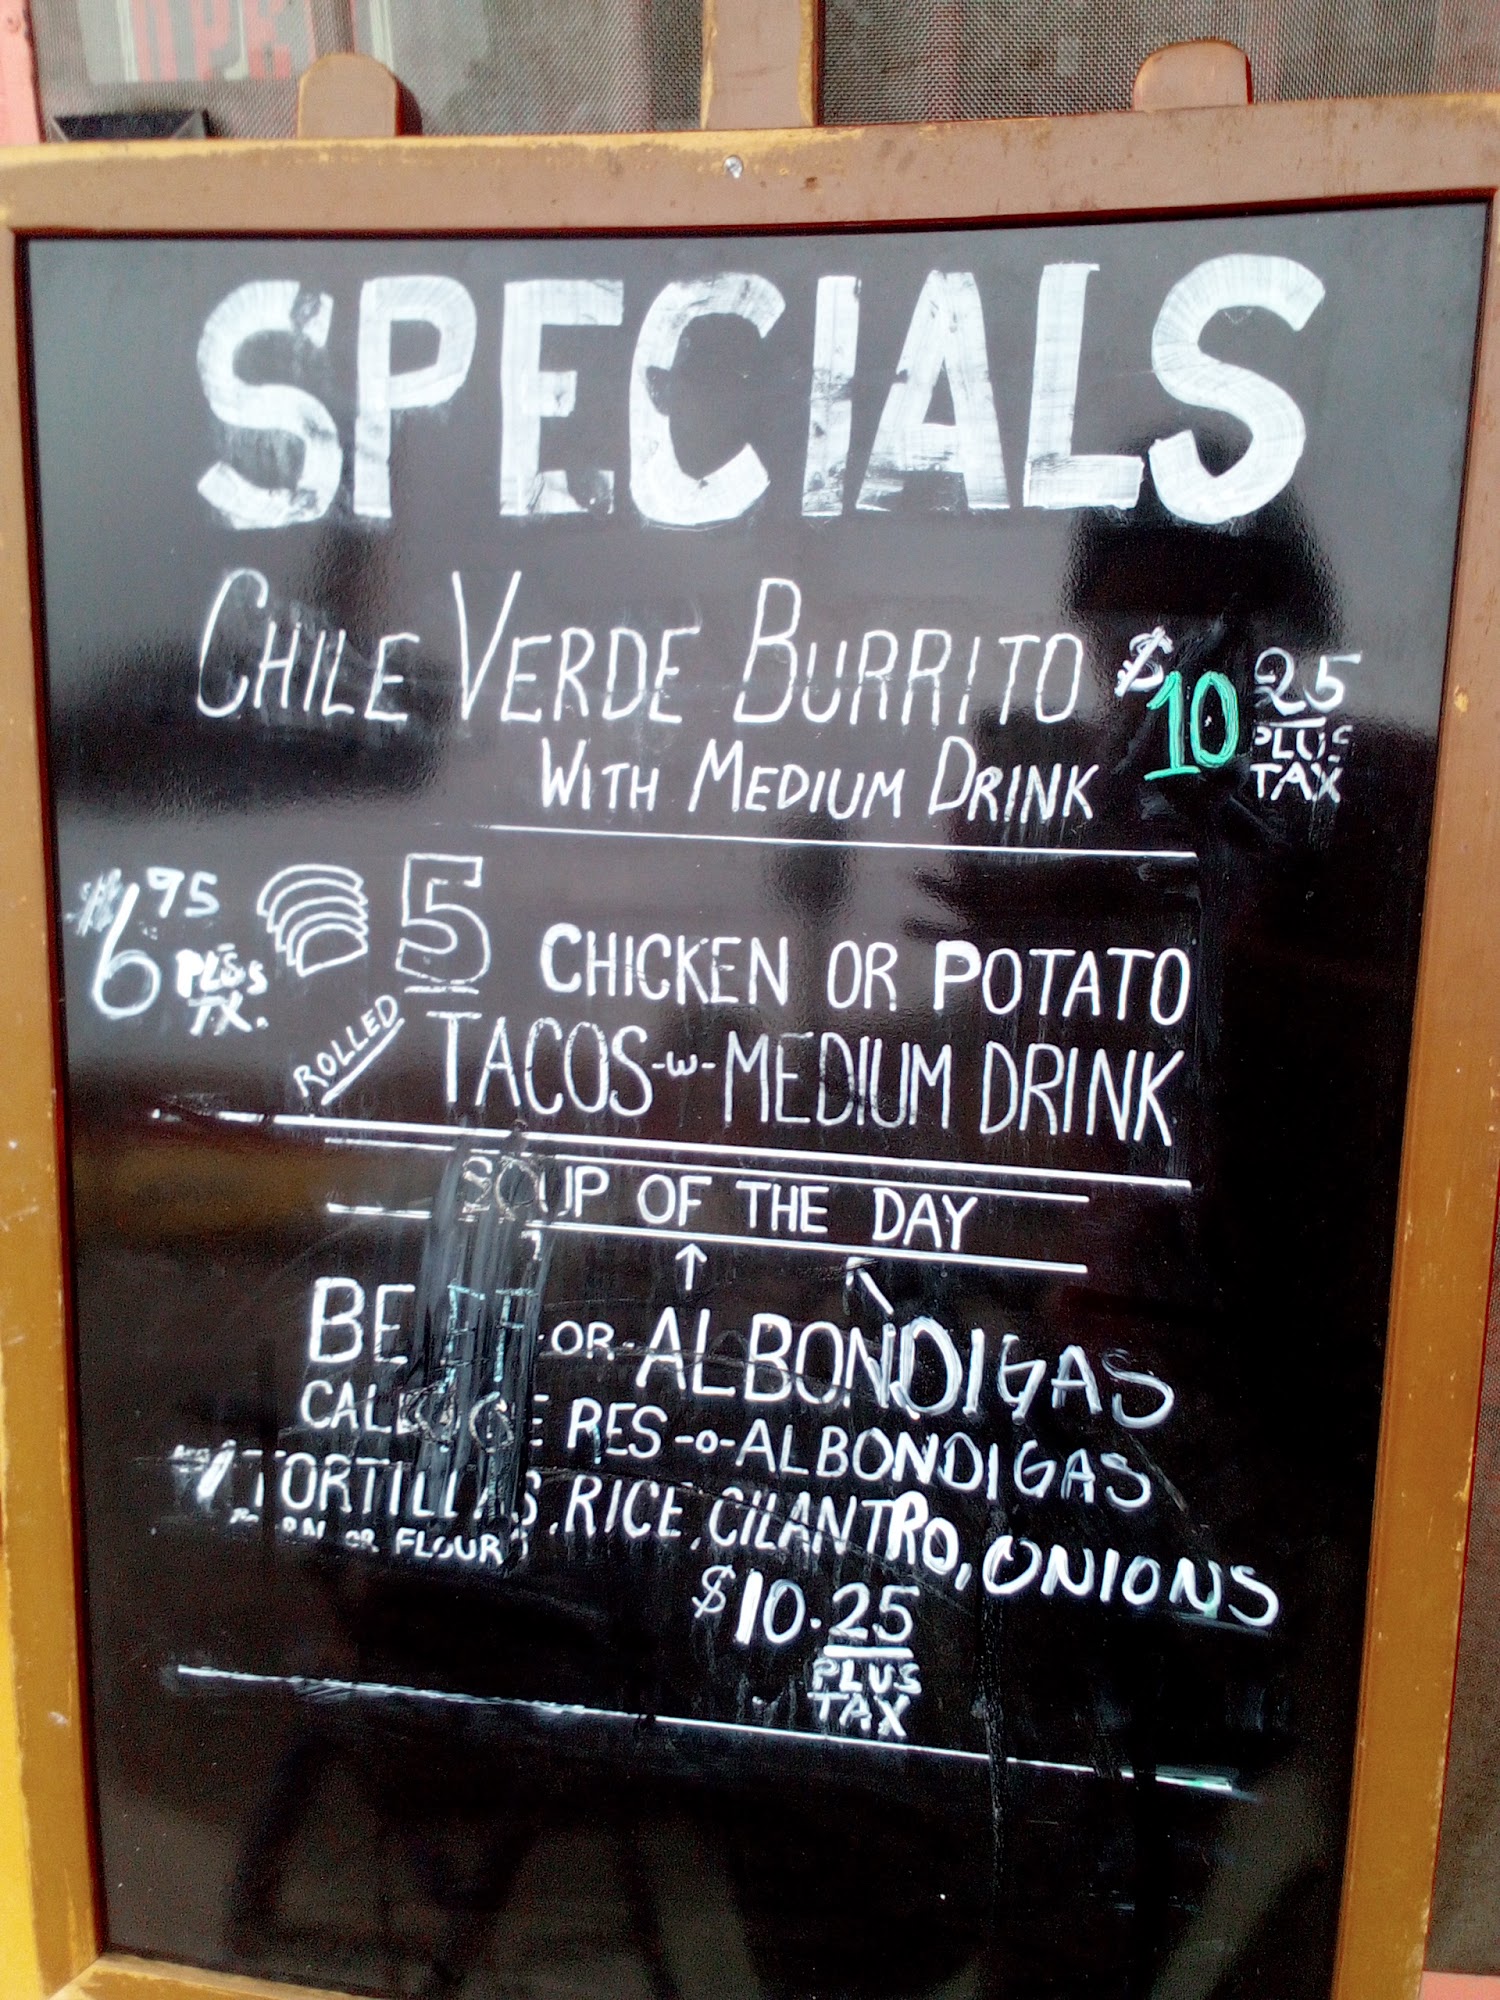 SPECIALS
CHILE VERDE BURRITO $10 25
WITH MEDIUM DRINK PLUS
TAX
$6 95 5 CHICKEN OR POTATO
PLUS
TX.
ROLLED TACOS -W- MEDIUM DRINK
SOUP OF THE DAY
BEEF -OR- ALBONDIGAS
CALDO DE RES -O- ALBONDIGAS
TORTILLAS, RICE, CILANTRO, ONIONS
OR FLOUR)
$10.25
PLUS
TAX